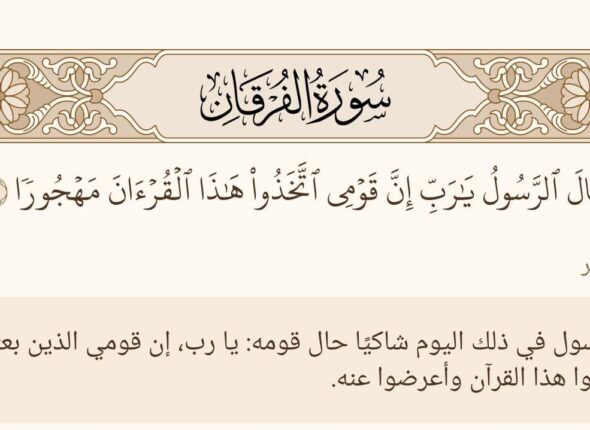 سُورَةُ الفُرْقَانِ
ٱلرَّسُولُ يَٰرَبِّ إِنَّ قَوْمِى ٱتَّخَذُواْ هَٰذَا ٱلْقُرْءَانَ مَهْجُورًا
في ذلك اليوم شاكيًا حال قومه: يا رب، إن قومي الذين
هذا القرآن وأعرضوا عنه.